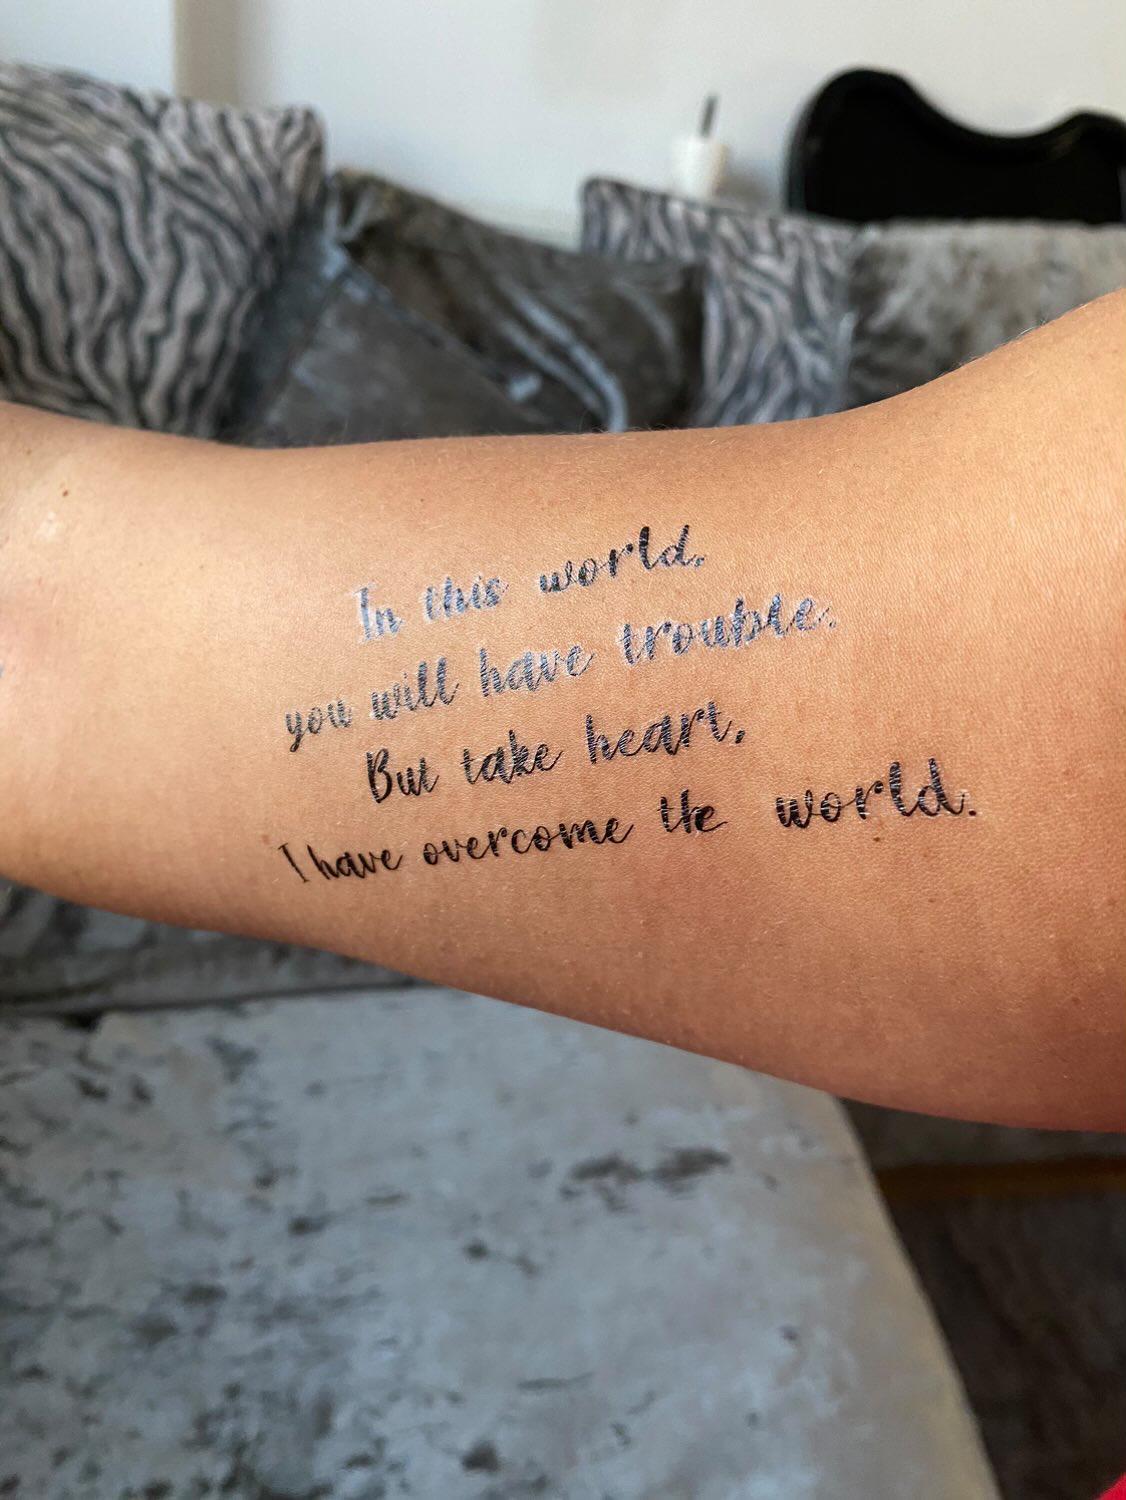 In this world,
you will have trouble.
But take heart,
I have overcome the world.